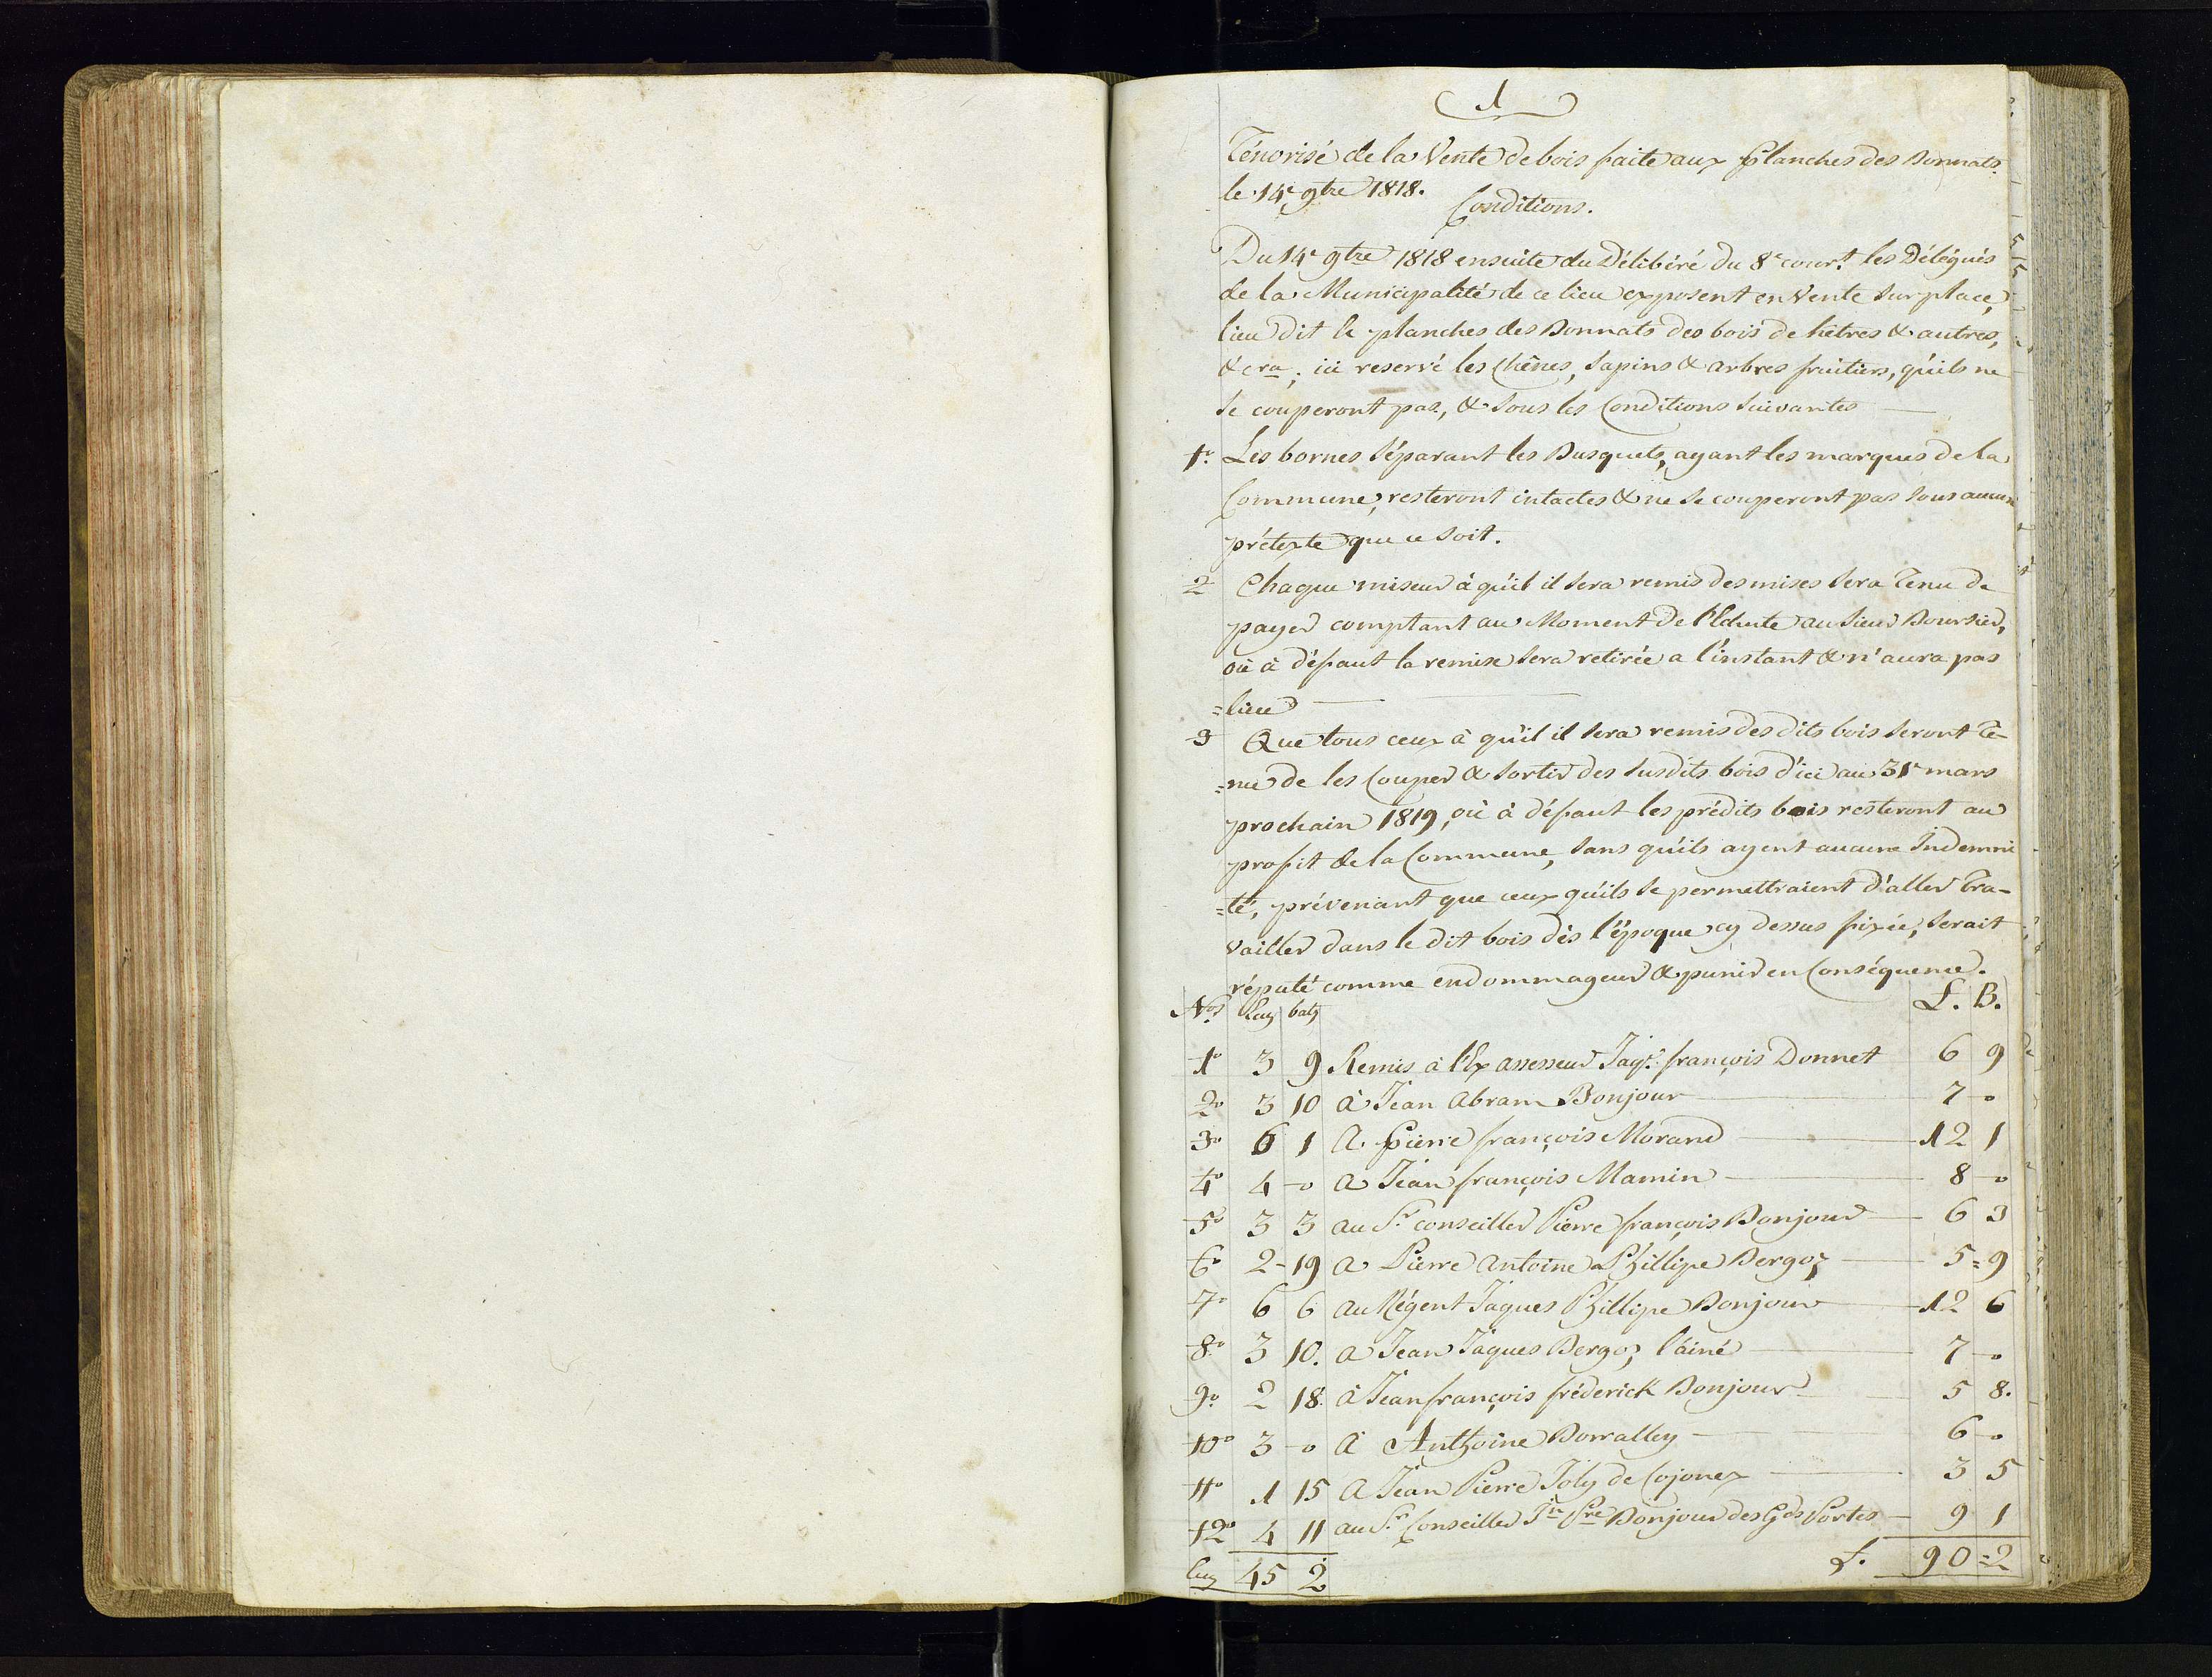 1
Ténorisé de la Vente de bois faite aux planches des Donnats
le 14e 9bre 1818.
Conditions.
Du 14e 9bre 1818 ensuite du Délibéré du 8e cour.t les Délégués
de la Municipalité de ce lieu exposent en Vente sur place,
lieu dit le planches des Donnats des bois de hêtres & autres,
&cra; ici reservé les Chênes, Sapins & arbres fruitiers, qu'ils ne
se couperont pas, & sous les Conditions suivantes
1o. Les bornes séparant les Busquets, ayant les marques de la
Commune, resteront intactes & ne se couperont pas sous aucun
prétexte que ce soit.
2 Chaque miseur à qu'il il sera remis des mises sera tenu de
payer comptant au Moment de l'Echute au sieur Boursier,
où à défaut la remise sera retirée a l'instant & n'aura pas
=lieu
3 Que tous ceux à qu'il il sera remis des dits bois seront te-
=nu de les Couper & sortir des susdits bois d'ici au 31e mars
prochain 1819, où à défaut les prédits bois resteront au
profit de la Commune, sans qu'ils ayent aucune Indemni
=té, prévenant que ceux qu'ils se permettraient d'aller tra-
vailler dans le dit bois dès l'époque cy dessus fixée, serait
réputé comme endommageur & punir en Conséquence.
Nos Ecus batz L. B.
1o 3 9 Remis à l'Ex assesseur Jaqs. françois Donnet 6 9
2o 3 10 à Jean Abram Bonjour 7 -o
3o 6 1 A Pierre françois Morand 12 1
4o 4 -o a Jean françois Mamin 8 -o
5o 3 3 au Sr. conseiller Pierre françois Bonjour 6 3
6o 2 - 19 a Pierre Antoine Phillipe Bergoz 5 = 9
7o 6 6 au Régent Jaques Phillipe Bonjour 12 6
8o 3 10. a Jean Jaques Bergoz l'ainé 7 -o
9o 2 18. à Jean françois fréderick Bonjour 5 8.
10o 3 -o à Anthoine Dorralley 6 -o
11o 1 15 A Jean Pierre Joly de Cojonex 3 5
12o 4 11 au Sr. Conseiller Jn Pre Bonjour des Gds Portes 9 1
Ecus 45 2 L. 90 = 2